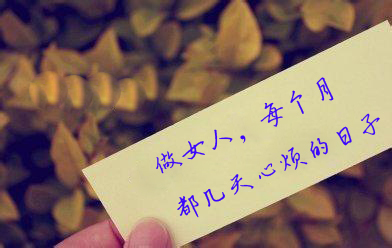 做女人，每个月
都几天心烦的日子